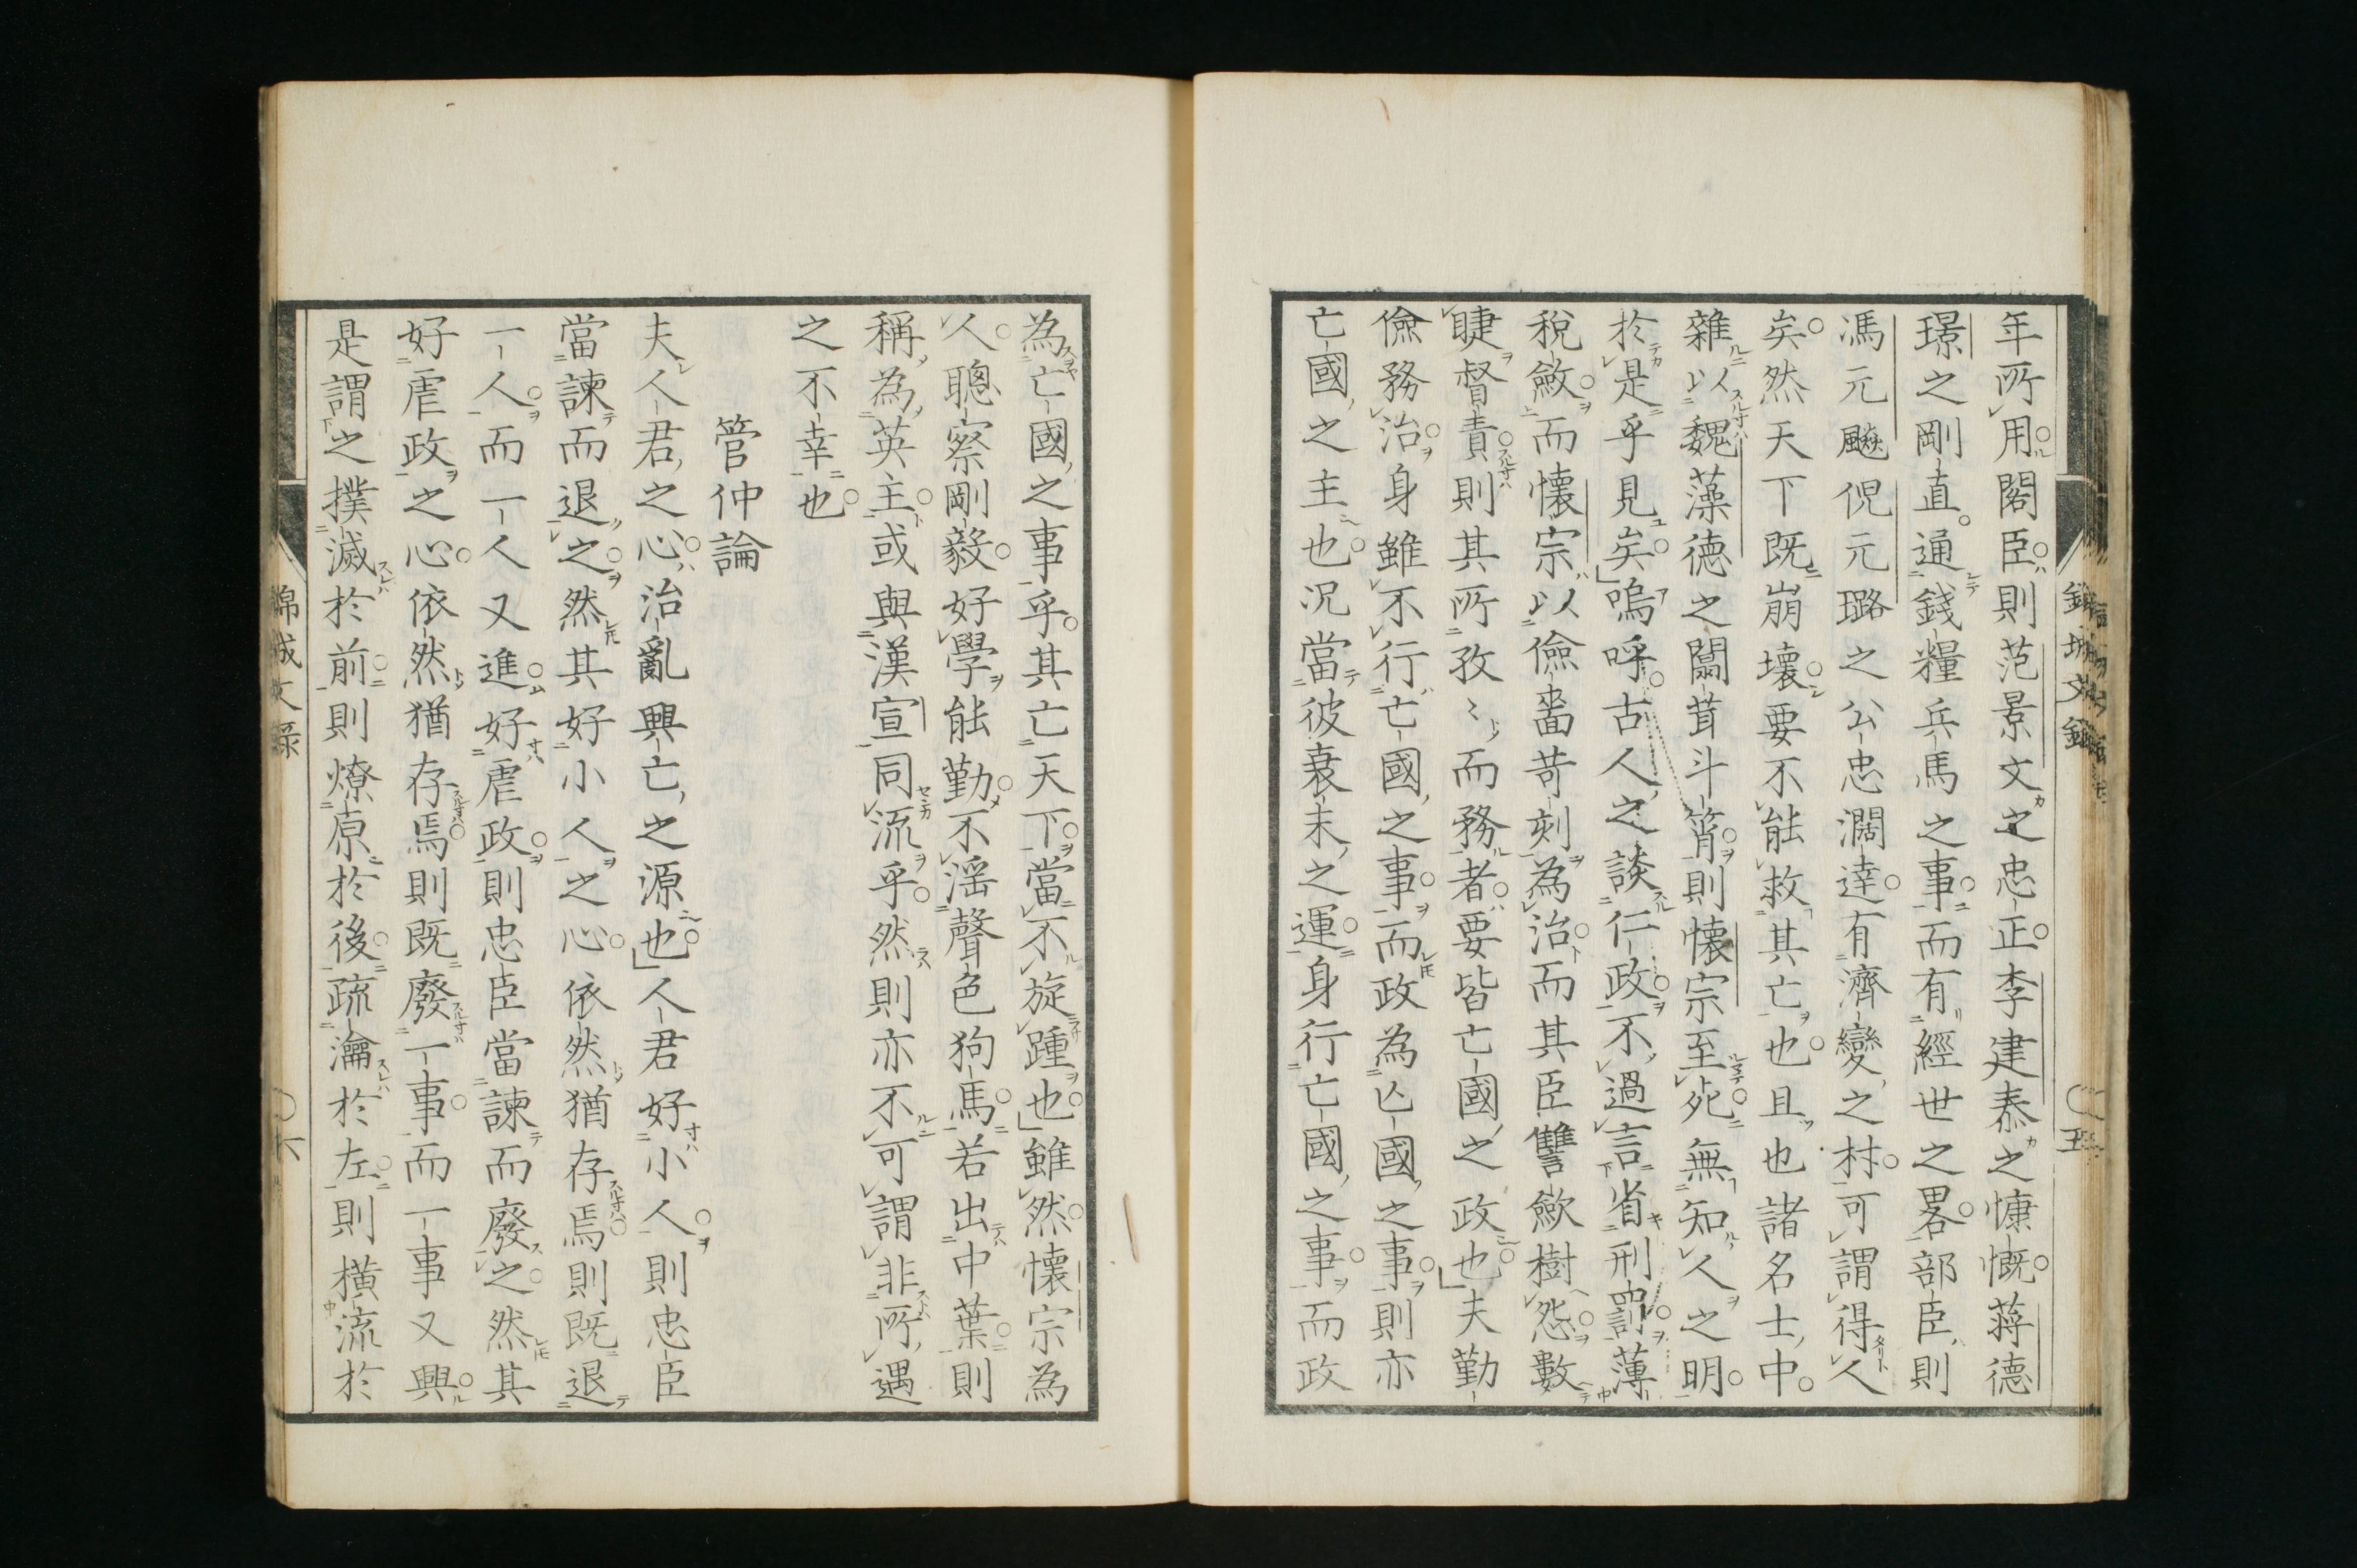 年所用閣臣則范景文之忠正李建泰之慷慨蔣德
璟之剛直通錢糧兵馬之事而有經世之畧部臣則
馮元飈倪元璐之公忠濶達有濟變之材可謂得人
矣然天下既崩壞要不能救其亡也且也諸名士中
雜以魏藻德之闒茸斗筲則懷宗至死無知人之明
於是乎見矣嗚呼古人之談仁政不過言省刑罰薄
稅斂而懷宗以儉嗇苛刻為治而其臣讐斂樹怨數
睫督責則其所孜〻而務者要皆亡國之政也夫勤
儉務治身雖不行亡國之事而政為亡國之事則亦
亡國之主也況當彼衰末之運身行亡國之事而政
為亡國之事乎其亡天下當不旋踵也雖然懷宗為
人聰察剛毅好學能勤不淫聲色狗馬若出中葉則
稱為英主或與漢宣同流乎然則亦不可謂非所遇
之不幸也
管仲論
夫人君之心治亂興亡之源也人君好小人則忠臣
當諫而退之然其好小人之心依然猶存焉則既退
一人而一人又進好虐政則忠臣當諫而廢之然其
好虐政之心依然猶存焉則既廢一事而一事又興
是謂之撲滅於前則燎原於後疏瀹於左則橫流於
錦城文錄
六